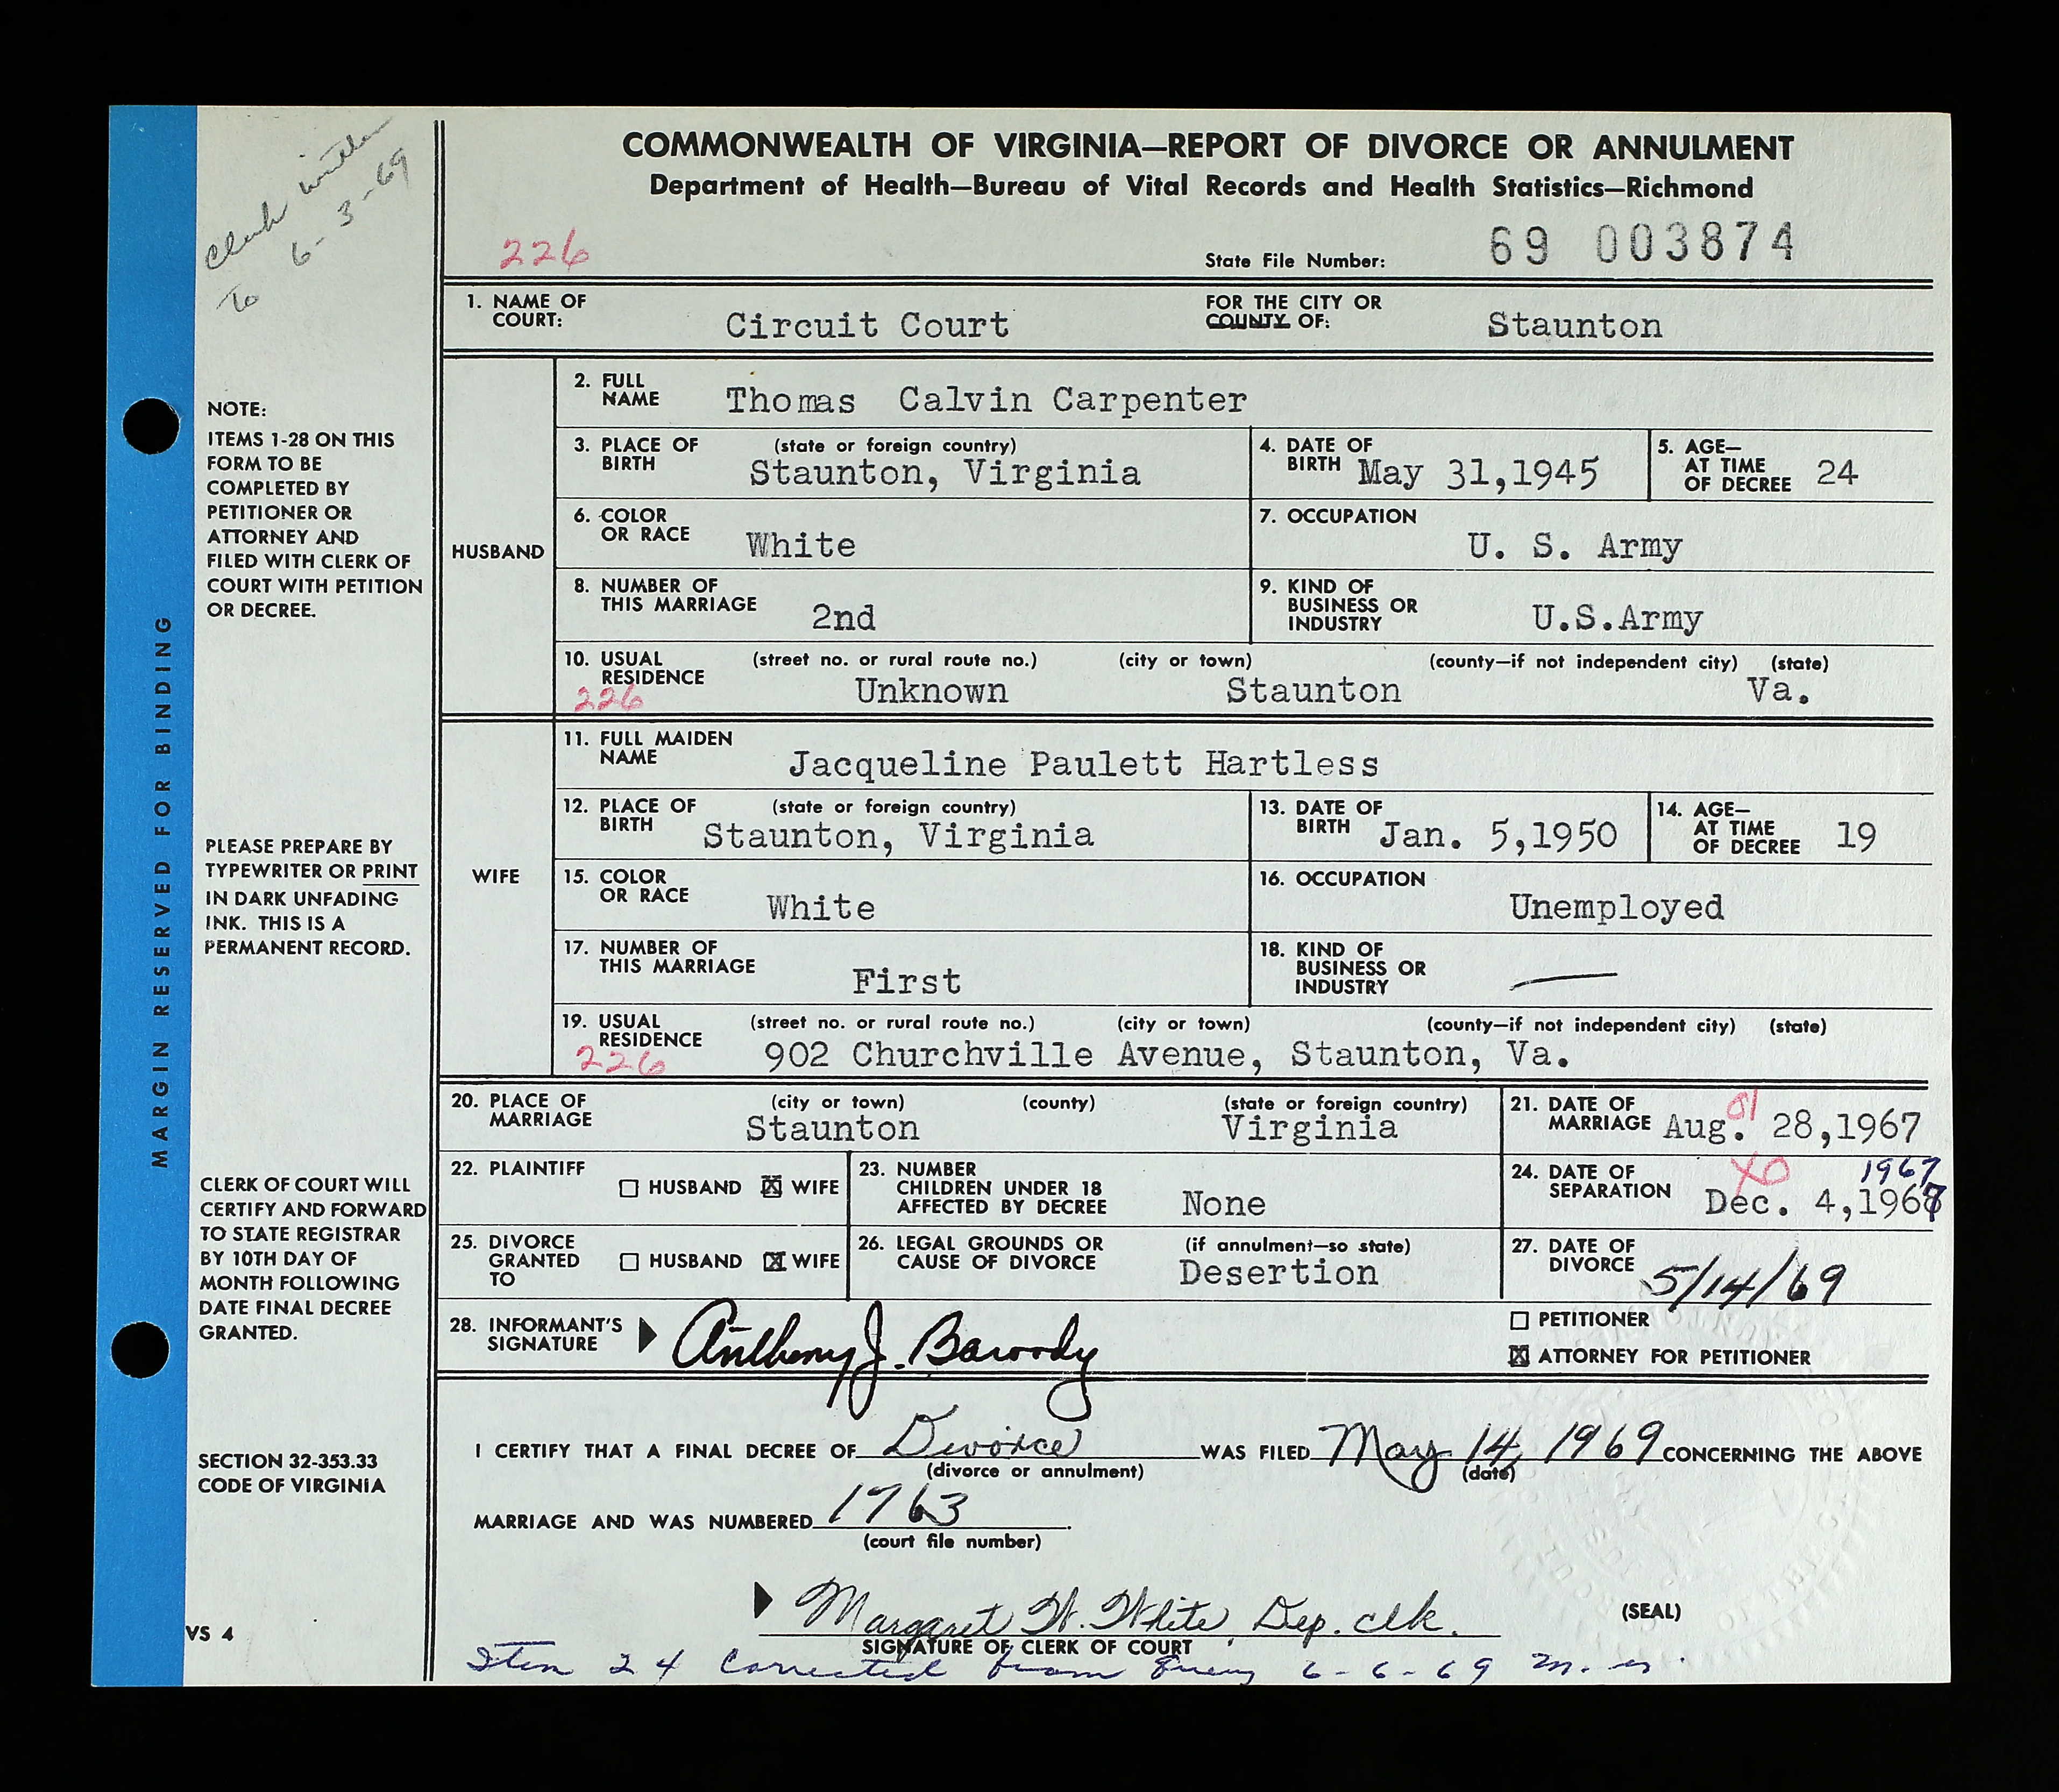 Clerk written
6-3-69
To
COMMONWEALTH OF VIRGINIA—REPORT OF DIVORCE OR ANNULMENT
Department of Health—Bureau of Vital Records and Health Statistics—Richmond
226
State File Number: 69 003874
1. NAME OF COURT: Circuit Court FOR THE CITY OR COUNTY OF: Staunton
HUSBAND
2. FULL NAME Thomas Calvin Carpenter
3. PLACE OF BIRTH (state or foreign country) Staunton, Virginia 4. DATE OF BIRTH May 31,1945 5. AGE—AT TIME OF DECREE 24
6. COLOR OR RACE White 7. OCCUPATION U. S. Army
8. NUMBER OF THIS MARRIAGE 2nd 9. KIND OF BUSINESS OR INDUSTRY U.S.Army
10. USUAL RESIDENCE (street no. or rural route no.) (city or town) (county—if not independent city) (state)
226 Unknown Staunton Va.
WIFE
11. FULL MAIDEN NAME Jacqueline Paulett Hartless
12. PLACE OF BIRTH (state or foreign country) Staunton, Virginia 13. DATE OF BIRTH Jan. 5,1950 14. AGE—AT TIME OF DECREE 19
15. COLOR OR RACE White 16. OCCUPATION Unemployed
17. NUMBER OF THIS MARRIAGE First 18. KIND OF BUSINESS OR INDUSTRY —
19. USUAL RESIDENCE (street no. or rural route no.) (city or town) (county—if not independent city) (state)
226 902 Churchville Avenue, Staunton, Va.
20. PLACE OF MARRIAGE (city or town) (county) (state or foreign country) Staunton Virginia 21. DATE OF MARRIAGE Aug. 28,1967
01
22. PLAINTIFF ☐ HUSBAND ☒ WIFE 23. NUMBER CHILDREN UNDER 18 AFFECTED BY DECREE None 24. DATE OF SEPARATION Dec. 4,1967
X0 1967
25. DIVORCE GRANTED TO ☐ HUSBAND ☒ WIFE 26. LEGAL GROUNDS OR CAUSE OF DIVORCE (if annulment—so state) Desertion 27. DATE OF DIVORCE 5/14/69
28. INFORMANT'S SIGNATURE Anthony J. Baroody ☐ PETITIONER
☒ ATTORNEY FOR PETITIONER
I CERTIFY THAT A FINAL DECREE OF Divorce WAS FILED May 14, 1969 CONCERNING THE ABOVE
(divorce or annulment) (date)
MARRIAGE AND WAS NUMBERED 1763.
(court file number)
Margaret W. White, Dep. clk.
SIGNATURE OF CLERK OF COURT
(SEAL)
Item 24 Corrected from Query 6-6-69
MARGIN RESERVED FOR BINDING
NOTE:
ITEMS 1-28 ON THIS
FORM TO BE
COMPLETED BY
PETITIONER OR
ATTORNEY AND
FILED WITH CLERK OF
COURT WITH PETITION
OR DECREE.
PLEASE PREPARE BY
TYPEWRITER OR PRINT
IN DARK UNFADING
INK. THIS IS A
PERMANENT RECORD.
CLERK OF COURT WILL
CERTIFY AND FORWARD
TO STATE REGISTRAR
BY 10TH DAY OF
MONTH FOLLOWING
DATE FINAL DECREE
GRANTED.
SECTION 32-353.33
CODE OF VIRGINIA
VS 4